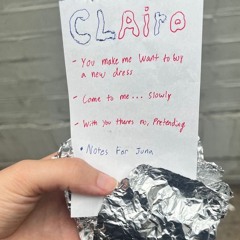 CLAirO
- You make me want to buy
a new dress
- Come to me... slowly
- With you theres no, Pretending
• Notes For Juna